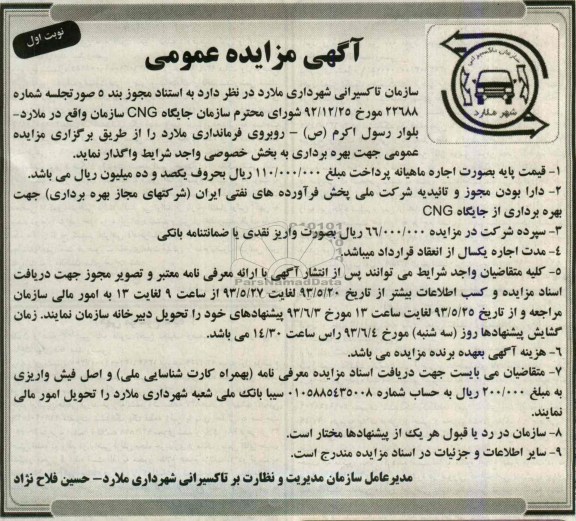 نوبت اول
آگهی مزایده عمومی
سازمان تاکسیرانی
شهر ملارد
سازمان تاکسیرانی شهرداری ملارد در نظر دارد به استناد مجوز بند ۵ صورتجلسه شماره
۲۲۶۸۸ مورخ ۹۲/۱۲/۲۵ شورای محترم سازمان جایگاه CNG سازمان واقع در ملارد-
بلوار رسول اکرم (ص) – روبروی فرمانداری ملارد را از طریق برگزاری مزایده
عمومی جهت بهره برداری به بخش خصوصی واجد شرایط واگذار نماید.
۱- قیمت پایه بصورت اجاره ماهیانه پرداخت مبلغ ۱۱۰/۰۰۰/۰۰۰ ریال بحروف یکصد و ده میلیون ریال می باشد.
۲- دارا بودن مجوز و تائیدیه شرکت ملی پخش فرآورده های نفتی ایران (شرکتهای مجاز بهره برداری) جهت
بهره برداری از جایگاه CNG
۳- سپرده شرکت در مزایده ۶۶/۰۰۰/۰۰۰ ریال بصورت واریز نقدی یا ضمانتنامه بانکی
۴- مدت اجاره یکسال از انعقاد قرارداد میباشد.
۵- کلیه متقاضیان واجد شرایط می توانند پس از انتشار آگهی با ارائه معرفی نامه معتبر و تصویر مجوز جهت دریافت
اسناد مزایده و کسب اطلاعات بیشتر از تاریخ ۹۳/۵/۲۰ لغایت ۹۳/۵/۲۷ از ساعت ۹ لغایت ۱۳ به امور مالی سازمان
مراجعه و از تاریخ ۹۳/۵/۲۵ لغایت ساعت ۱۳ مورخ ۹۳/۶/۳ پیشنهادهای خود را تحویل دبیرخانه سازمان نمایند. زمان
گشایش پیشنهادها روز (سه شنبه) مورخ ۹۳/۶/۴ راس ساعت ۱۴/۳۰ می باشد.
۶- هزینه آگهی بعهده برنده مزایده می باشد.
۷- متقاضیان می بایست جهت دریافت اسناد مزایده معرفی نامه (بهمراه کارت شناسایی ملی) و اصل فیش واریزی
به مبلغ ۲۰۰/۰۰۰ ریال به حساب شماره ۰۱۰۵۸۸۵۴۳۵۰۰۸ سیبا بانک ملی شعبه شهرداری ملارد را تحویل امور مالی
نمایند.
۸- سازمان در رد یا قبول هر یک از پیشنهادها مختار است.
۹- سایر اطلاعات و جزئیات در اسناد مزایده مندرج است.
مدیرعامل سازمان مدیریت و نظارت بر تاکسیرانی شهرداری ملارد– حسین فلاح نژاد
ParsNamadData